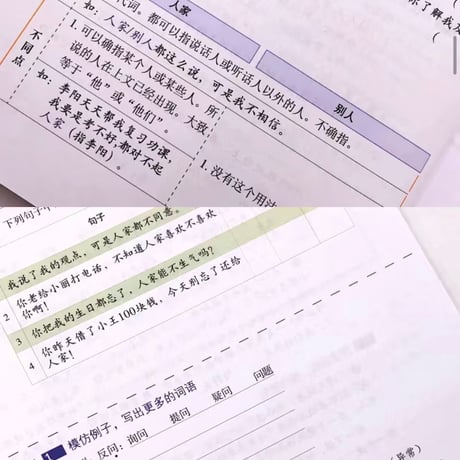 你了解我是
(
人家
别人
代词。都可以指说话人或听话人以外的人。不确指。
如：人家/别人都这么说，可是我不相信。
不同点
1. 可以确指某个人或某些人。所
说的人在上文已经出现。大致
等于“他”或“他们”。
如：李阳天天帮我复习功课，
我要是考不好，都对不起
人家（指李阳）。
1. 没有这个用法
下列句子中
句子
我说了我的观点，可是人家都不同意。
2 你老给小丽打电话，不知道人家喜欢不喜欢
你啊！
3 你把我的生日都忘了，人家能不生气吗？
4 你昨天借了小王100块钱，今天别忘了还给
人家！
1 模仿例子，写出更多的词语
反问：询问 提问 疑问 问题
(异常)